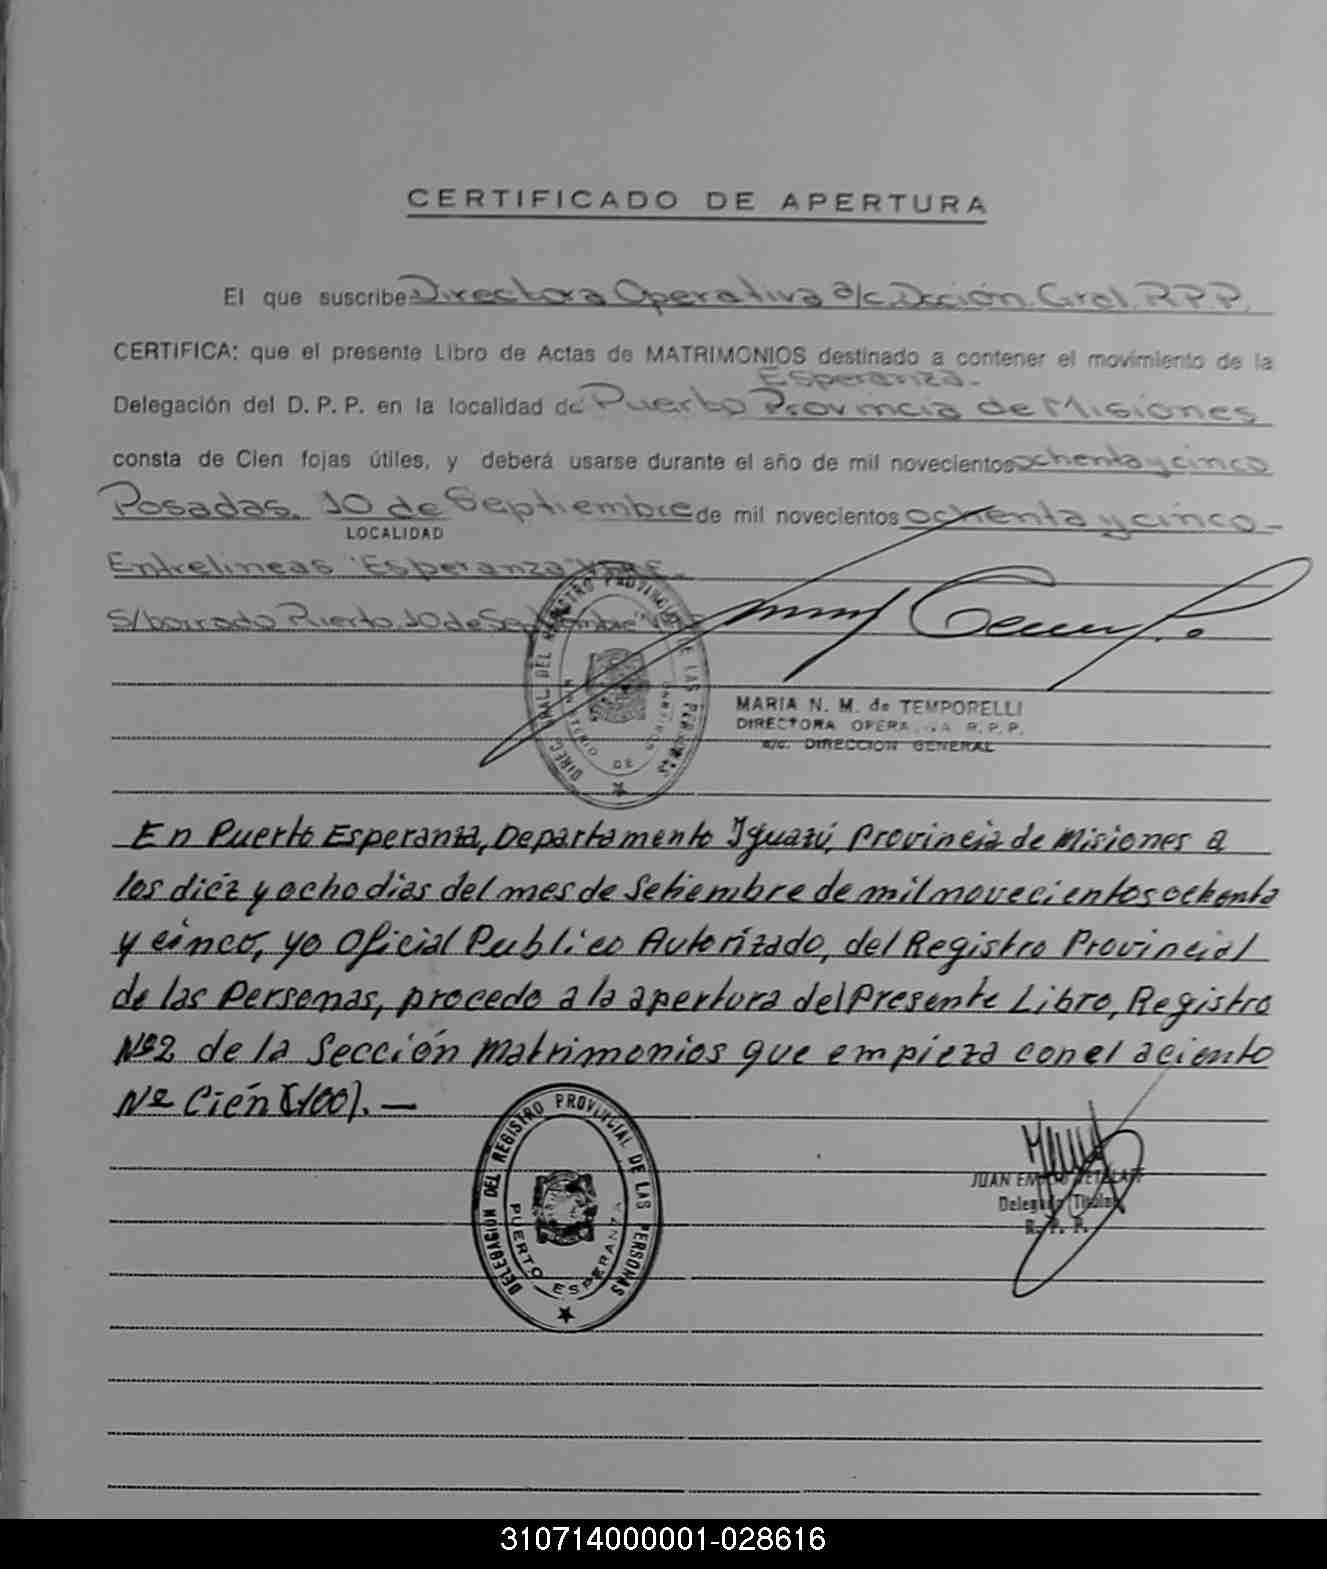 CERTIFICADO DE APERTURA
El que suscribe Directora Operativa a/c. Dcción. Gral. R.P.P.
CERTIFICA: que el presente Libro de Actas de MATRIMONIOS destinado a contener el movimiento de la
Esperanza.-
Delegación del D. P. P. en la localidad de Puerto Provincia de Misiones
consta de Cien fojas útiles, y deberá usarse durante el año de mil novecientos ochenta y cinco
Posadas, 10 de Septiembre de mil novecientos ochenta y cinco-
LOCALIDAD
Entrelineas "Esperanza" Vale.
S/borrado Puerto. 10 de Septiembre" Vale
DIREC. GRAL DEL REGISTRO PROVINCIAL DE LAS PERSONAS
DE
MARIA N. M. de TEMPORELLI
DIRECTORA R. P. P.
a/c. DIRECCION GENERAL
En Puerto Esperanza, Departamento Iguazú, Provincia de Misiones a
los diéz y ocho dias del mes de Setiembre de mil novecientos ochenta
y cinco, yo Oficial Publico Autorizado, del Registro Provincial
de las Personas, procedo a la apertura del Presente Libro, Registro
Nº2 de la Sección Matrimonios que empieza con el aciento
Nº Cién (100). —
DELEGACION DEL REGISTRO PROVINCIAL DE LAS PERSONAS
PUERTO ESPERANZA
JUAN
Delegado Titular
R. P. P.
310714000001-028616